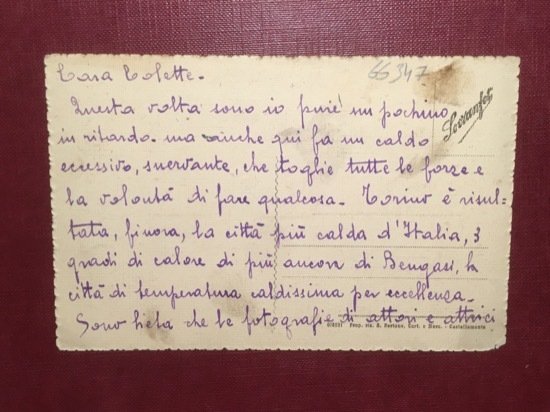 66347
Cara Colette-
Questa volta sono io pure un pochino
in ritardo- ma anche qui fa un caldo
eccessivo, snervante, che toglie tutte le forze e
la volontà di fare qualcosa- Torino è risul-
tata, finora, la città più calda d'Italia, 3
gradi di calore di più ancora di Bengasi, la
città di temperatura caldissima per eccellenza-
Sono lieta che le fotografie di attori e attrici
Prop. ris. G. Bertone, Cart. e Merc. - Castellamonte